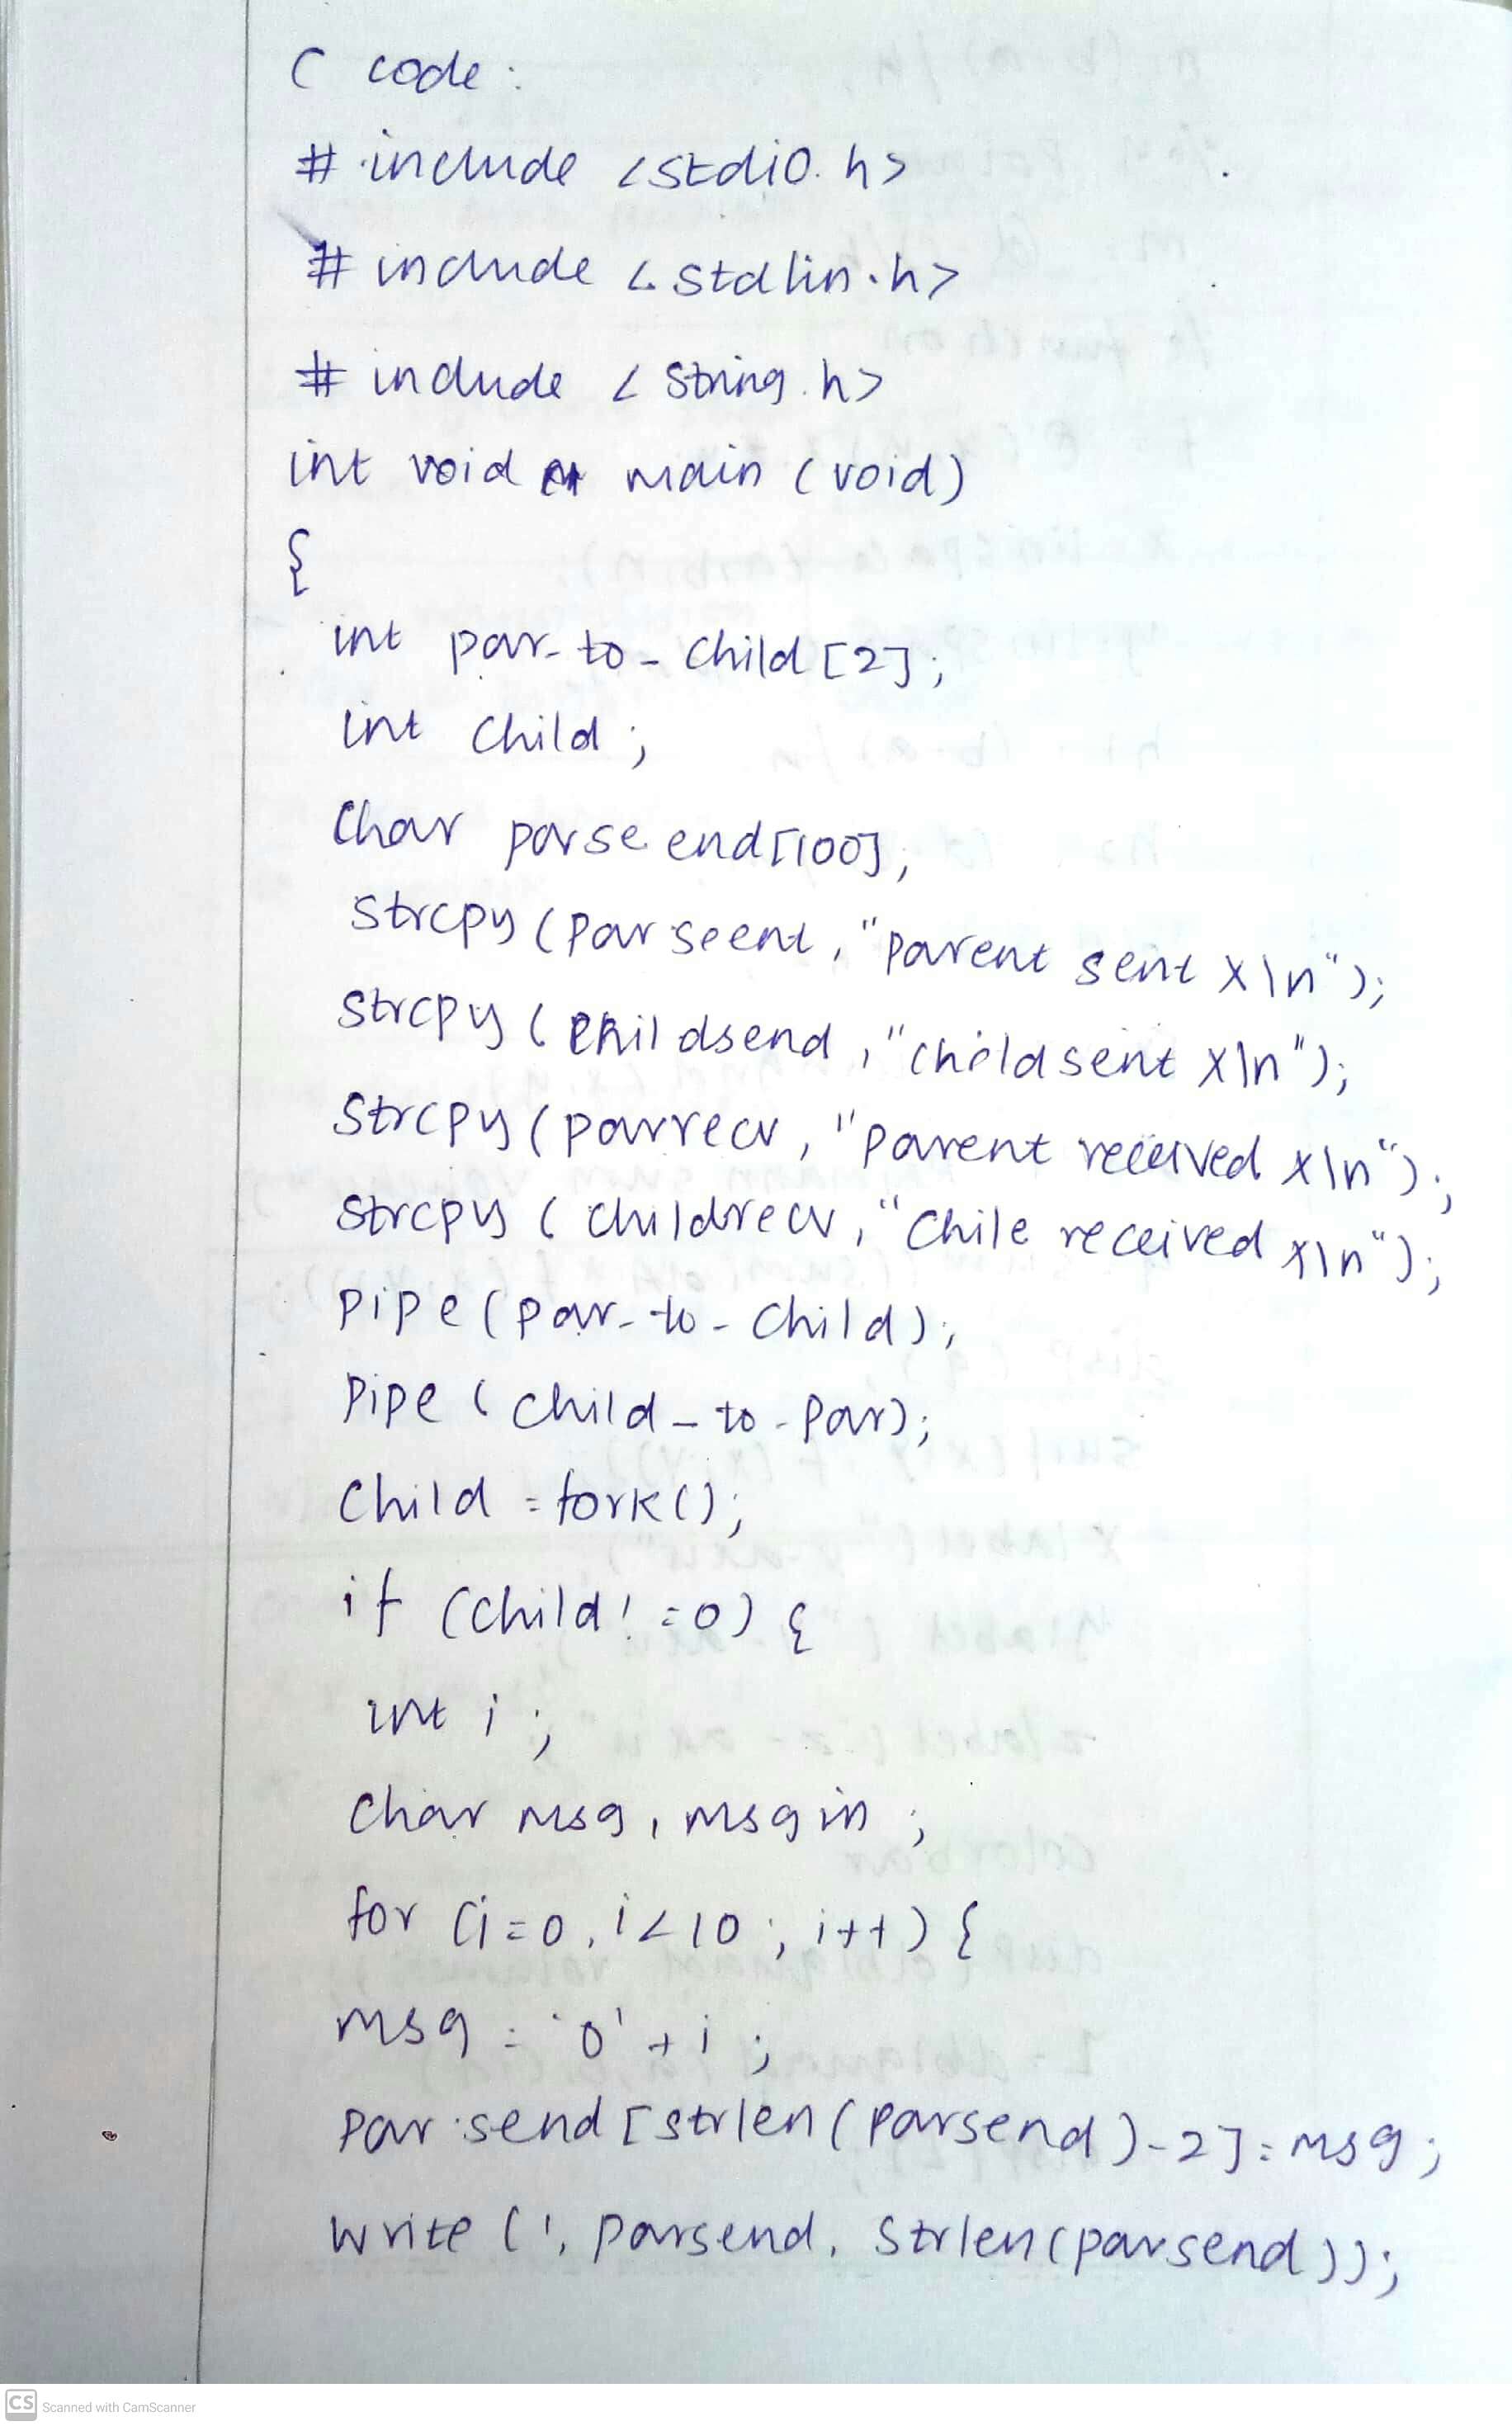 C code:
# include <stdio.h>
# include <stdlin.h>
# include <string.h>
int void main (void)
{
int par-to-child [2];
int child;
Char parse end[100];
Strcpy (Parseent, "parent sent x\n");
Strcpy (Childsend, "child sent x\n");
Strcpy (parrecv, "parent received x\n");
Strcpy (childrecv, "Chile received x\n");
pipe (par-to-Child);
Pipe (child-to-Par);
Child = fork();
if (child!=0) {
int i;
char msg, msgin;
for (i=0, i<10; i++) {
msg = '0'+i;
Par send [strlen(parsend)-2]=msg;
write (1, parsend, strlen(parsend));
CS Scanned with CamScanner